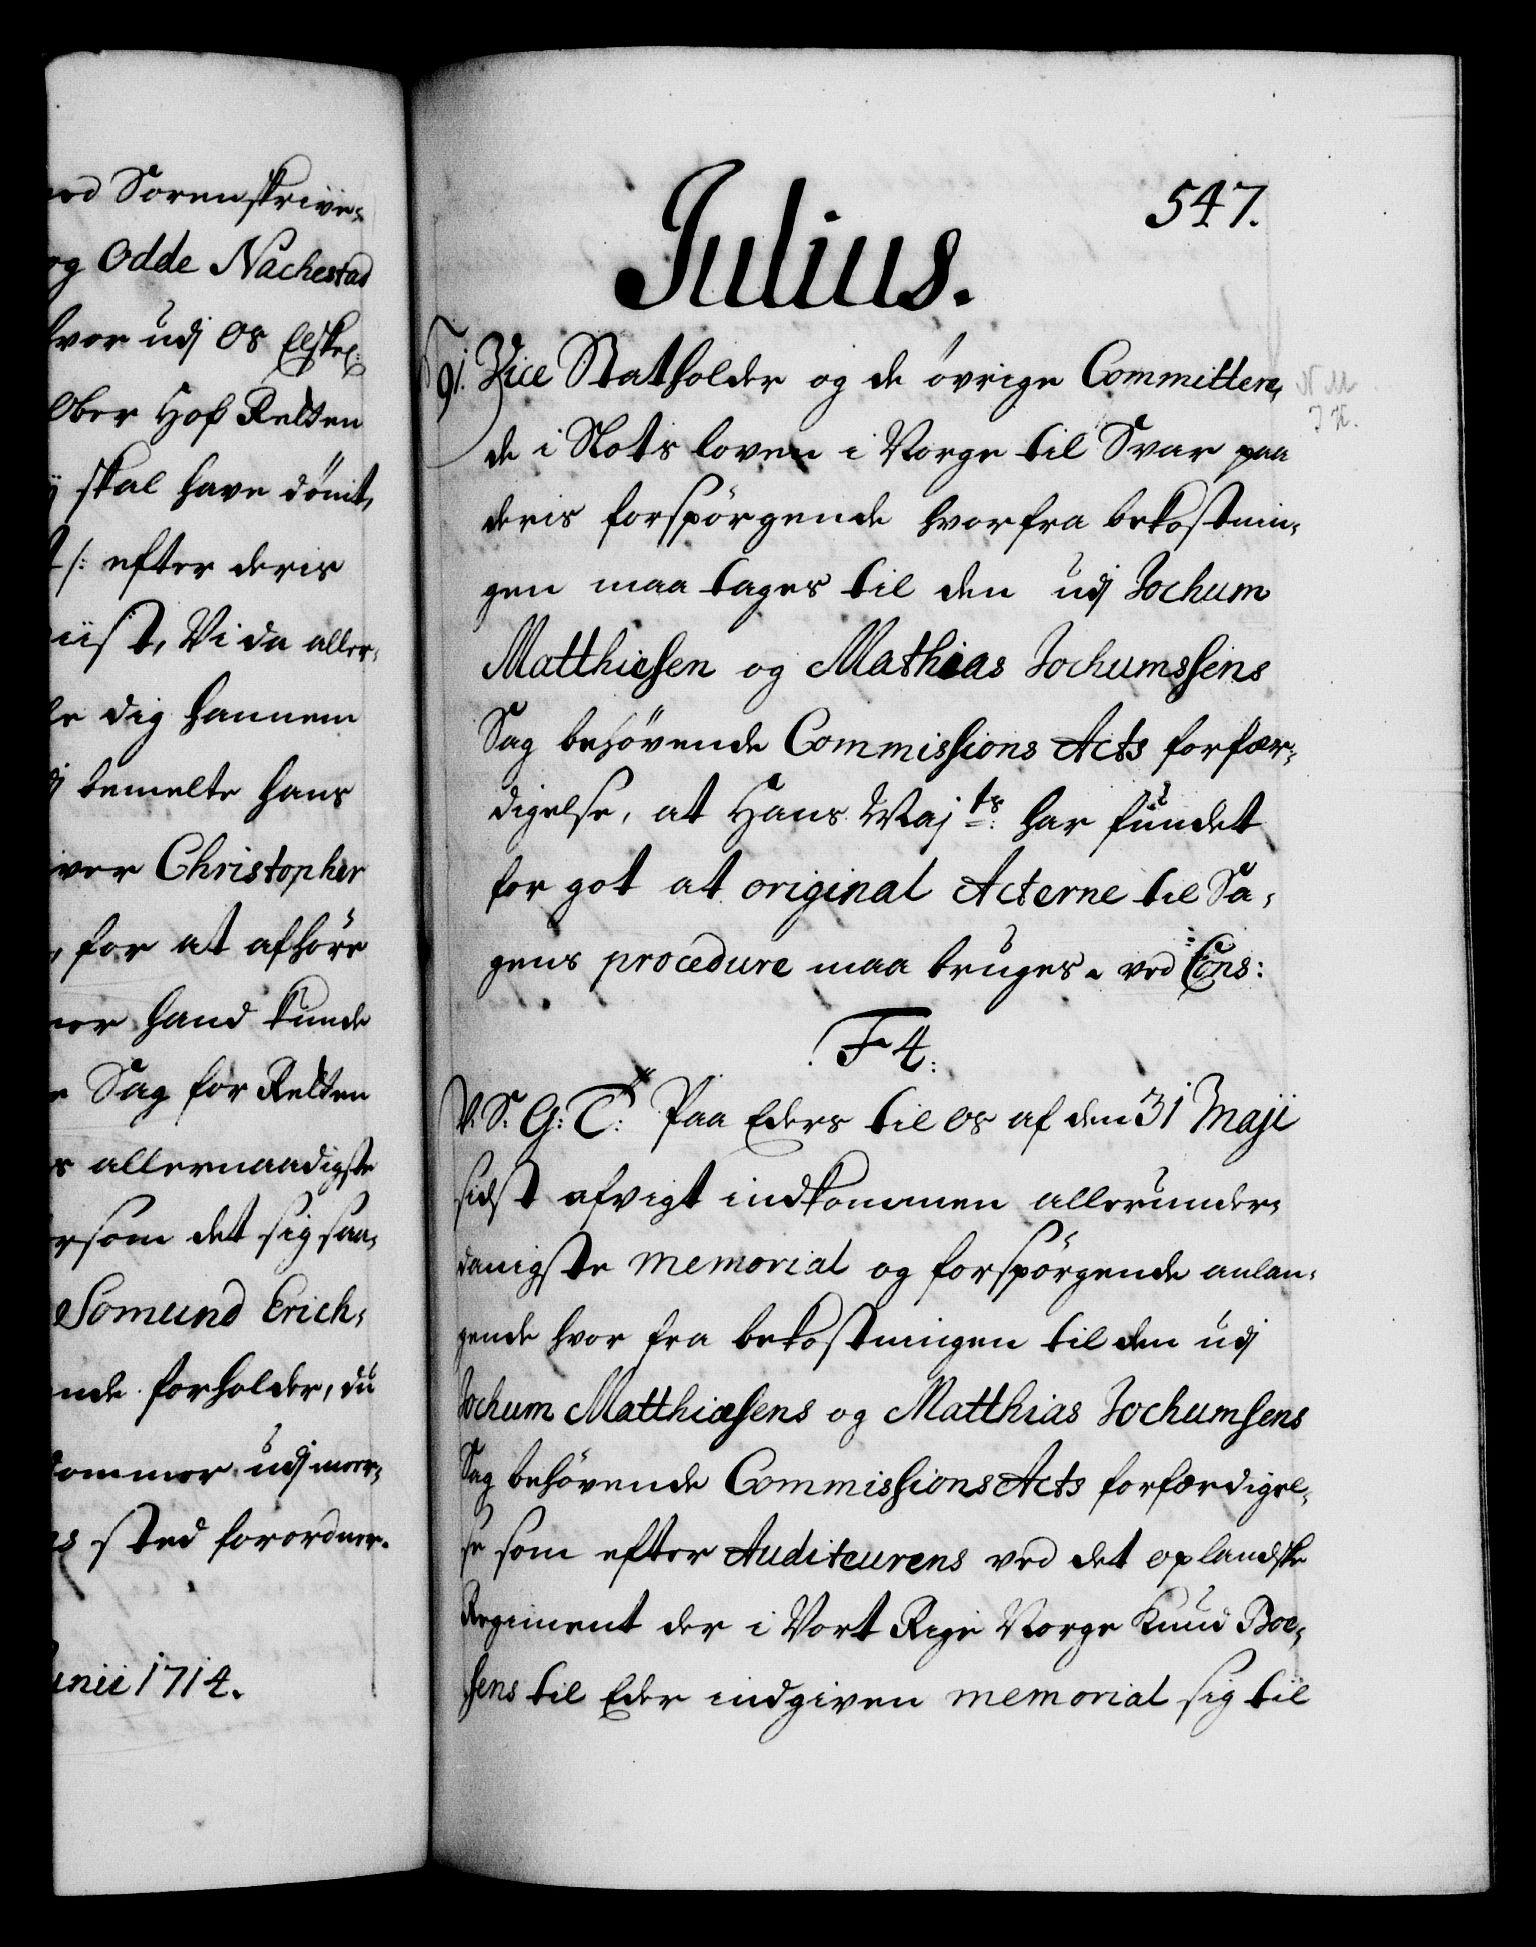 ved Sorenskrive-
og Odde Nachestad
hvor udj os Elskel:
Ober Hof Retten
skal have dömt,
/: efter deris
viist, Vi da aller-
dig hannem
bemelte hans
Christopher
, for at afhöre
hand kunde
Sag for Retten
allernaadigste
ersom det sig saa-
Somund Erich-
ende forholder, du
kommer udj meer-
sted forordner.
Junii 1714.
547.
Julius.
91. Vice Statholder og de övrige Committere,
de i Slots loven i Norge til Svar paa
deris forspörgende hvorfra bekostnin-
gen maa tages til den udj Jochum
Matthiesen og Mathias Jochumssens
Sag behövende Commissions Acts forfær-
digelse, at Hans Maj:ts har fundet
for got at original Acterne til Sa-
gens procedure maa bruges. ved Cons:
F 4.
V. S. G: T: Paa Eders til os af den 31 Maji
sidst afvigt indkommen allerunder-
danigste memorial og forspörgende anlan-
gende hvor fra bekostningen til den udj
Jochum Matthiæsens og Matthias Jochumsens
Sag behövende Commissions Acts forfærdigel-
se som efter Auditeurens ved det oplandske
Regiment der i Vort Rige Norge Knud Boe-
sens til Eder indgiven memorial sig til